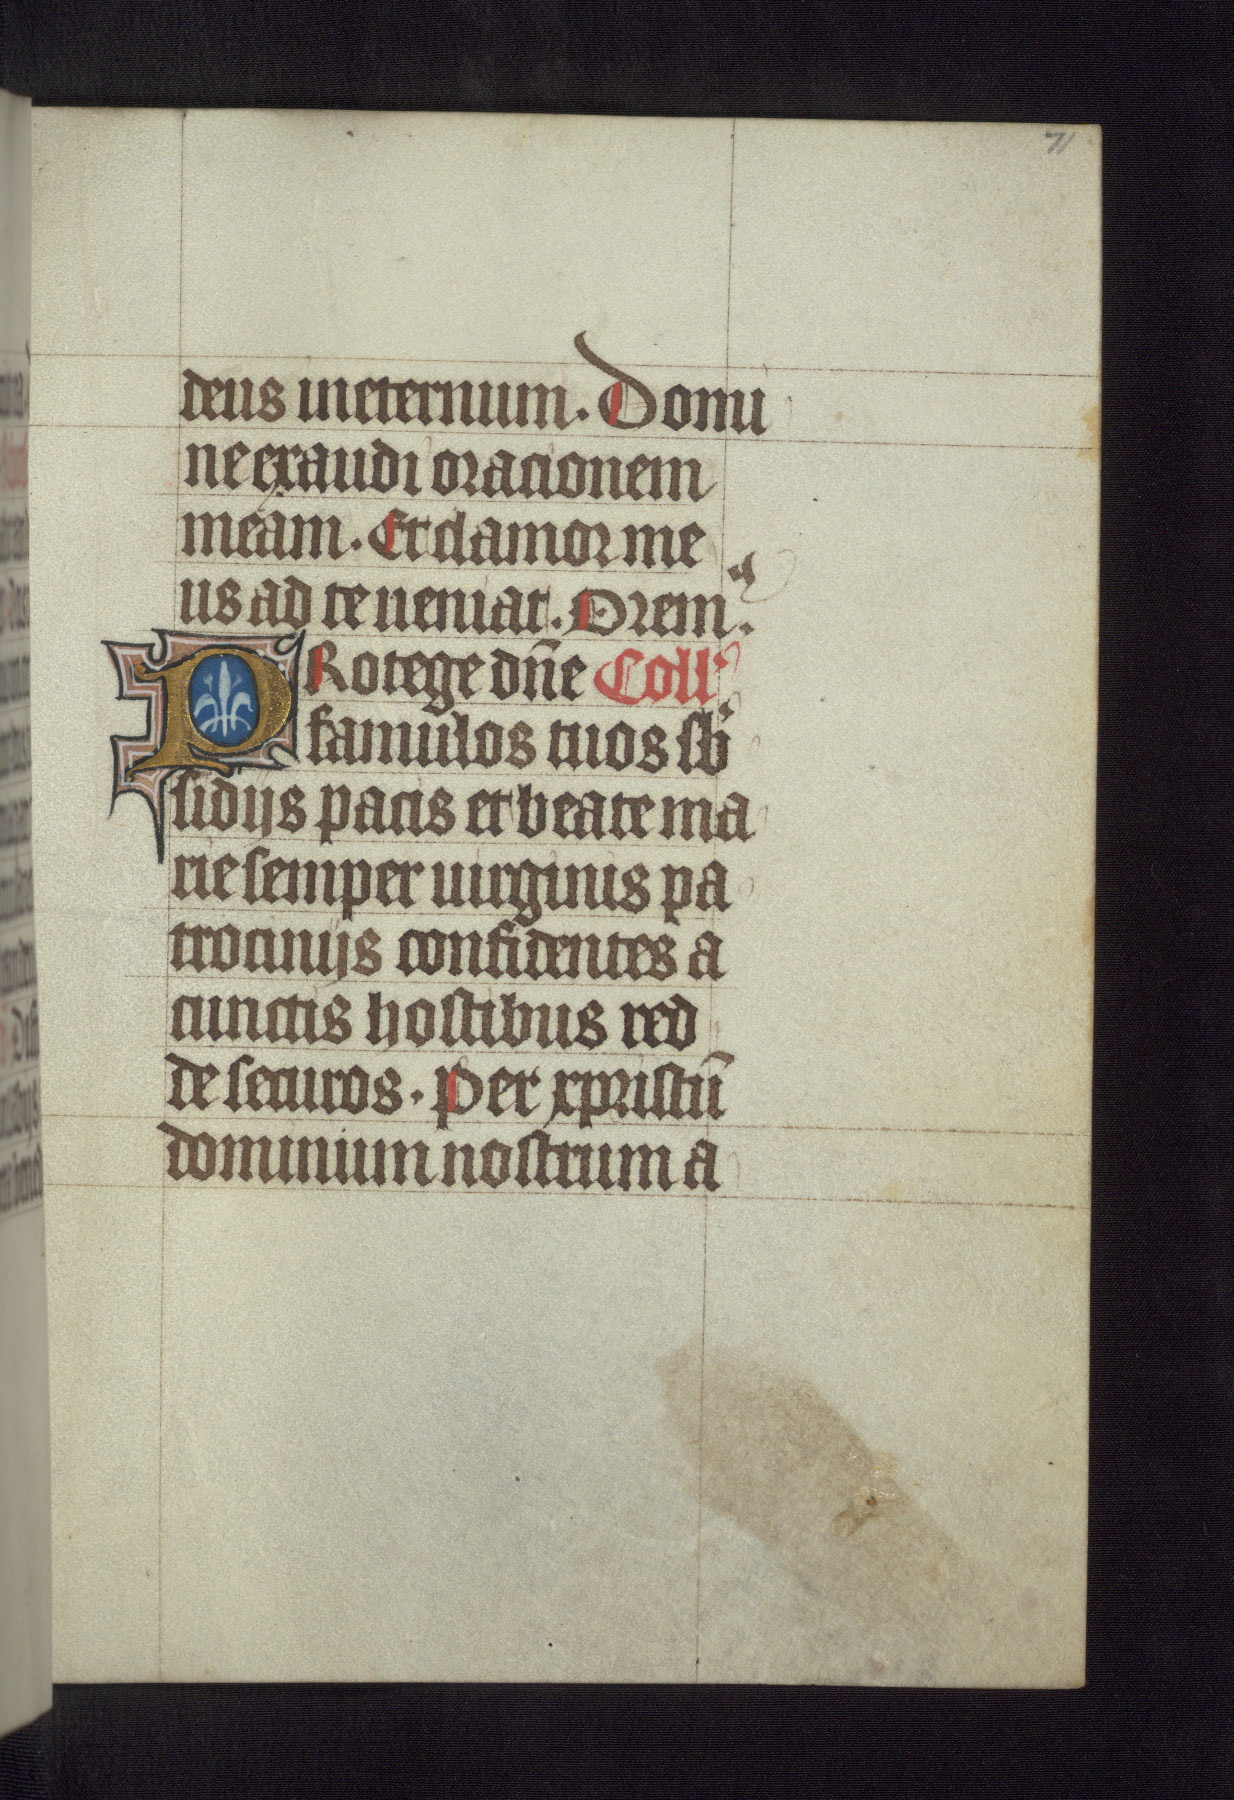 71
deus in eternum. Domi
ne exaudi oracionem
meam. Et clamor me
us ad te ueniat. Orem9.
PRotege dn̄e Coll'
famulos tuos sb'
sidijs pacis et beate ma
rie semper uirginis pa
trocinijs confidentes a
cunctis hostibus red
de securos. Per xpristū
dominium nostrum a